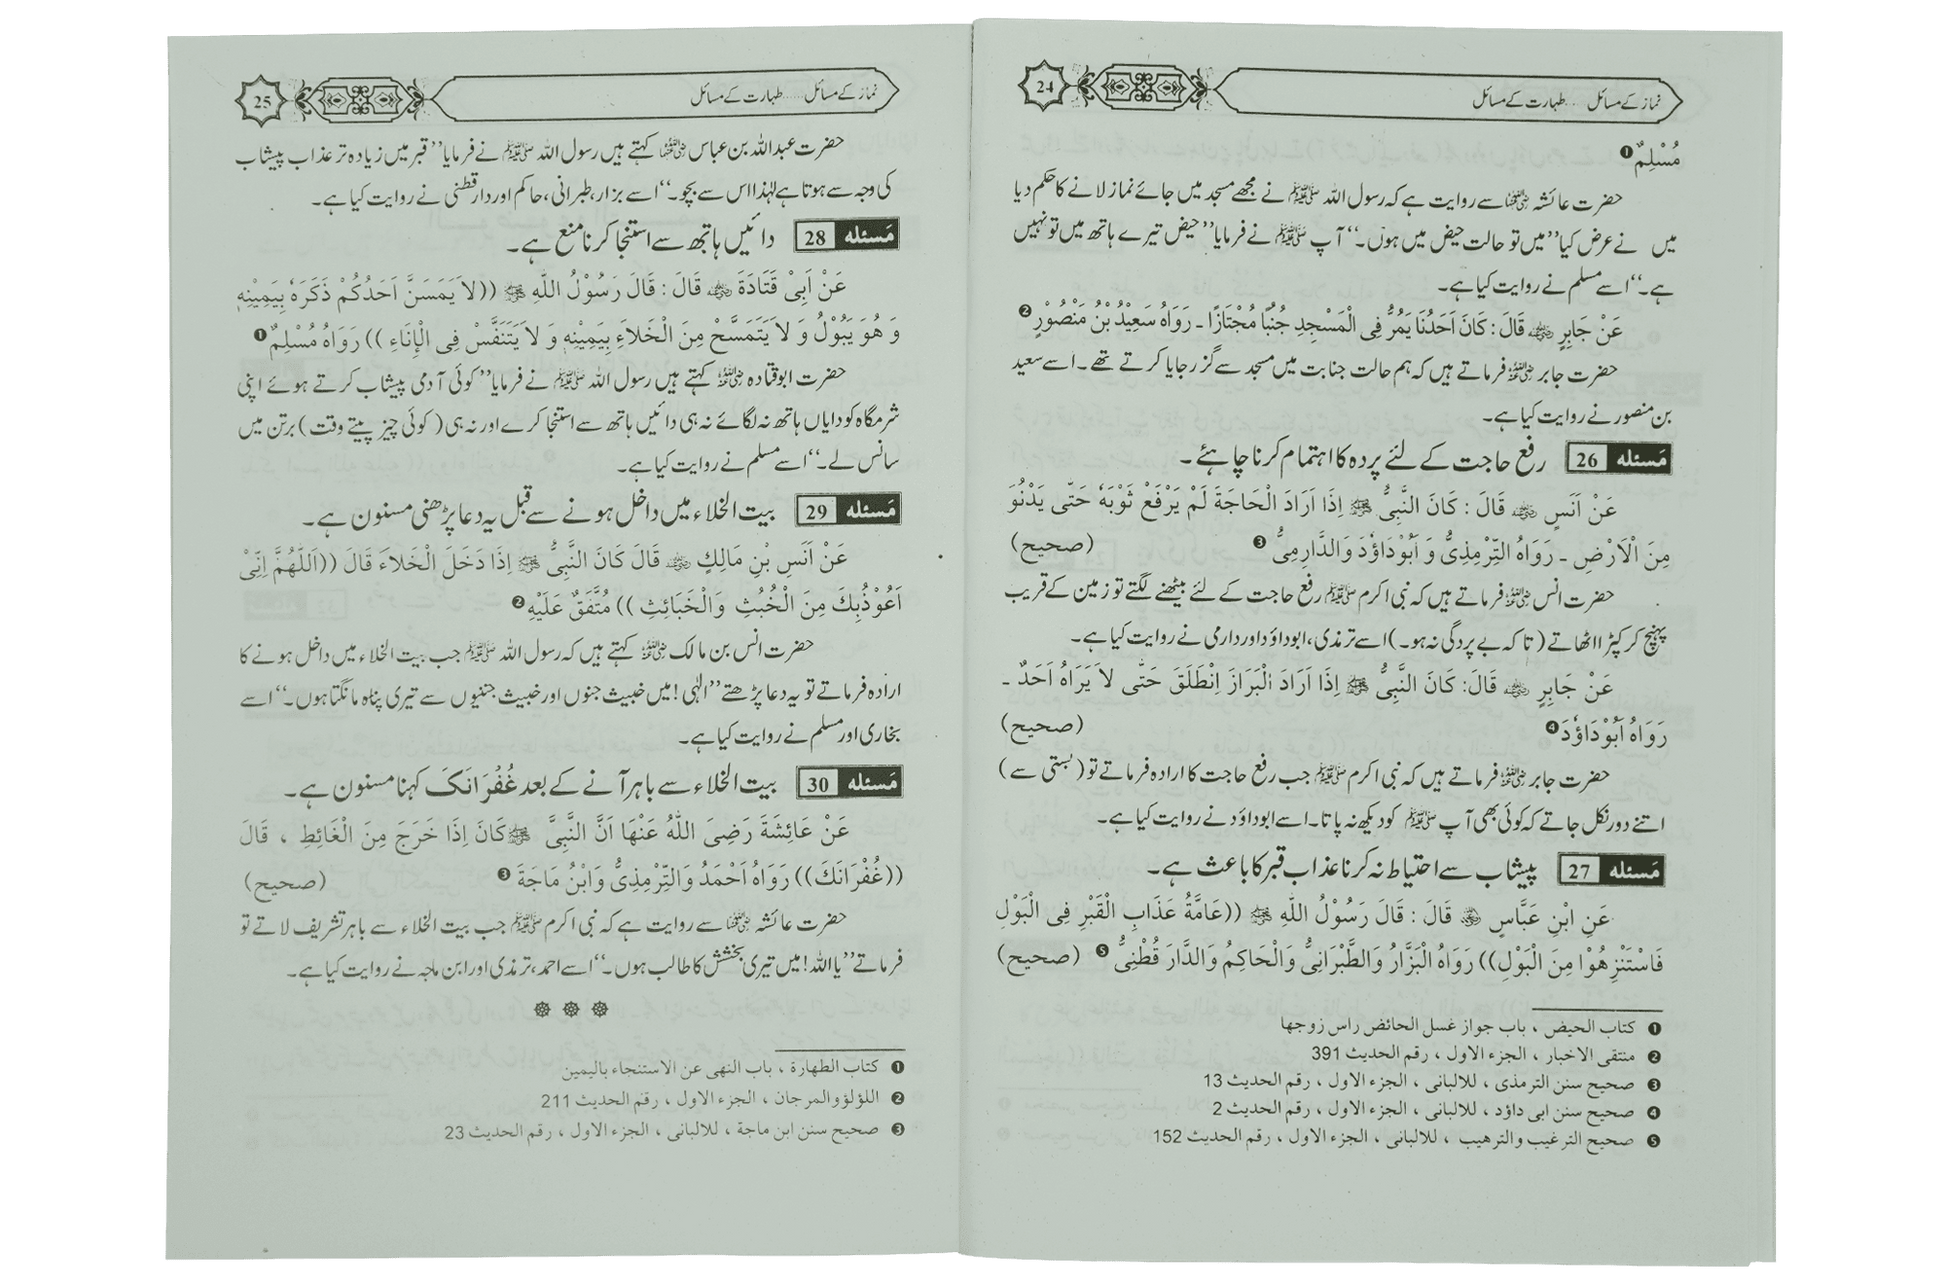 نماز کے مسائل.....طہارت کے مسائل
24
مُسْلِمٌ❶
حضرت عائشہ رضی اللہ عنہا سے روایت ہے کہ رسول اللہ ﷺ نے مجھے مسجد میں جائے نماز لانے کا حکم دیا
میں نے عرض کیا ’’میں تو حالت حیض میں ہوں۔‘‘ آپ ﷺ نے فرمایا ’’حیض تیرے ہاتھ میں تو نہیں
ہے۔‘‘ اسے مسلم نے روایت کیا ہے۔
عَنْ جَابِرٍ ؓ قَالَ : کَانَ اَحَدُنَا یَمُرُّ فِی الْمَسْجِدِ جُنُبًا مُجْتَازًا ۔ رَوَاہُ سَعِیْدُ بْنُ مَنْصُوْرٍ❷
حضرت جابر رضی اللہ عنہ فرماتے ہیں کہ ہم حالت جنابت میں مسجد سے گزر جایا کرتے تھے۔ اسے سعید
بن منصور نے روایت کیا ہے۔
مَسئلہ 26 رفع حاجت کے لئے پردہ کا اہتمام کرنا چاہئے۔
عَنْ اَنَسٍ ؓ قَالَ : کَانَ النَّبِیُّ ﷺ اِذَا اَرَادَ الْحَاجَةَ لَمْ یَرْفَعْ ثَوْبَہٗ حَتّٰی یَدْنُوَ
مِنَ الْاَرْضِ ۔ رَوَاہُ التِّرْمِذِیُّ وَ اَبُوْدَاوُدَ وَالدَّارِمِیُّ❸ (صحیح)
حضرت انس رضی اللہ عنہ فرماتے ہیں کہ نبی اکرم ﷺ رفع حاجت کے لئے بیٹھنے لگتے تو زمین کے قریب
پہنچ کر کپڑا اٹھاتے (تا کہ بے پردگی نہ ہو۔) اسے ترمذی، ابوداؤد اور دارمی نے روایت کیا ہے۔
عَنْ جَابِرٍ ؓ قَالَ: کَانَ النَّبِیُّ ﷺ اِذَا اَرَادَ الْبَرَازَ اِنْطَلَقَ حَتّٰی لاَ یَرَاہُ اَحَدٌ ۔
رَوَاہُ اَبُوْدَاوُدَ❹ (صحیح)
حضرت جابر رضی اللہ عنہ فرماتے ہیں کہ نبی اکرم ﷺ جب رفع حاجت کا ارادہ فرماتے تو (بستی سے)
اتنے دور نکل جاتے کہ کوئی بھی آپ ﷺ کو دیکھ نہ پاتا۔ اسے ابوداؤد نے روایت کیا ہے۔
مَسئلہ 27 پیشاب سے احتیاط نہ کرنا عذاب قبر کا باعث ہے۔
عَنِ ابْنِ عَبَّاسٍ ؓ قَالَ : قَالَ رَسُوْلُ اللّٰہِ ﷺ ((عَامَّةُ عَذَابِ الْقَبْرِ فِی الْبَوْلِ
فَاسْتَنْزِھُوْا مِنَ الْبَوْلِ)) رَوَاہُ الْبَزَّارُ وَالطَّبْرَانِیُّ وَالْحَاکِمُ وَالدَّارَ قُطْنِیُّ❺ (صحیح)
❶ کتاب الحیض ، باب جواز غسل الحائض راس زوجھا
❷ منتقی الاخبار ، الجزء الاول ، رقم الحدیث 391
❸ صحیح سنن الترمذی ، للالبانی ، الجزء الاول ، رقم الحدیث 13
❹ صحیح سنن ابی داؤد ، للالبانی ، الجزء الاول ، رقم الحدیث 2
❺ صحیح الترغیب والترھیب ، للالبانی ، الجزء الاول ، رقم الحدیث 152
نماز کے مسائل.....طہارت کے مسائل
25
حضرت عبداللہ بن عباس رضی اللہ عنہما کہتے ہیں رسول اللہ ﷺ نے فرمایا ’’قبر میں زیادہ تر عذاب پیشاب
کی وجہ سے ہوتا ہے لہٰذا اس سے بچو۔‘‘ اسے بزار، طبرانی، حاکم اور دارقطنی نے روایت کیا ہے۔
مَسئلہ 28 دائیں ہاتھ سے استنجا کرنا منع ہے۔
عَنْ اَبِیْ قَتَادَةَ ؓ قَالَ : قَالَ رَسُوْلُ اللّٰہِ ﷺ ((لاَ یَمَسَنَّ اَحَدُکُمْ ذَکَرَہٗ بِیَمِیْنِہٖ
وَ ھُوَ یَبُوْلُ وَ لاَ یَتَمَسَّحْ مِنَ الْخَلاَءِ بِیَمِیْنِہٖ وَ لاَ یَتَنَفَّسْ فِی الْاِنَاءِ )) رَوَاہُ مُسْلِمٌ❶
حضرت ابوقتادہ رضی اللہ عنہ کہتے ہیں رسول اللہ ﷺ نے فرمایا ’’کوئی آدمی پیشاب کرتے ہوئے اپنی
شرمگاہ کو دایاں ہاتھ نہ لگائے نہ ہی دائیں ہاتھ سے استنجا کرے اور نہ ہی (کوئی چیز پیتے وقت) برتن میں
سانس لے۔‘‘ اسے مسلم نے روایت کیا ہے۔
مَسئلہ 29 بیت الخلاء میں داخل ہونے سے قبل یہ دعا پڑھنی مسنون ہے۔
عَنْ اَنَسِ بْنِ مَالِكٍ ؓ قَالَ کَانَ النَّبِیُّ ﷺ اِذَا دَخَلَ الْخَلاَءَ قَالَ ((اَللّٰھُمَّ اِنِّیْ
اَعُوْذُبِكَ مِنَ الْخُبُثِ وَالْخَبَائِثِ )) مُتَّفَقٌ عَلَیْہِ❷
حضرت انس بن مالک رضی اللہ عنہ کہتے ہیں کہ رسول اللہ ﷺ جب بیت الخلاء میں داخل ہونے کا
ارادہ فرماتے تو یہ دعا پڑھتے ’’الٰہی! میں خبیث جنوں اور خبیث جننیوں سے تیری پناہ مانگتا ہوں۔‘‘ اسے
بخاری اور مسلم نے روایت کیا ہے۔
مَسئلہ 30 بیت الخلاء سے باہر آنے کے بعد غُفْرَانَكَ کہنا مسنون ہے۔
عَنْ عَائِشَةَ رَضِیَ اللّٰہُ عَنْھَا اَنَّ النَّبِیَّ ﷺ کَانَ اِذَا خَرَجَ مِنَ الْغَائِطِ ، قَالَ
((غُفْرَانَكَ)) رَوَاہُ اَحْمَدُ وَالتِّرْمِذِیُّ وَابْنُ مَاجَةَ❸ (صحیح)
حضرت عائشہ رضی اللہ عنہا سے روایت ہے کہ نبی اکرم ﷺ جب بیت الخلاء سے باہر تشریف لاتے تو
فرماتے ’’یا اللہ! میں تیری بخشش کا طالب ہوں۔‘‘ اسے احمد، ترمذی اور ابن ماجہ نے روایت کیا ہے۔
❶ کتاب الطھارة ، باب النھی عن الاستنجاء بالیمین
❷ اللؤلؤ والمرجان ، الجزء الاول ، رقم الحدیث 211
❸ صحیح سنن ابن ماجة ، للالبانی ، الجزء الاول ، رقم الحدیث 23